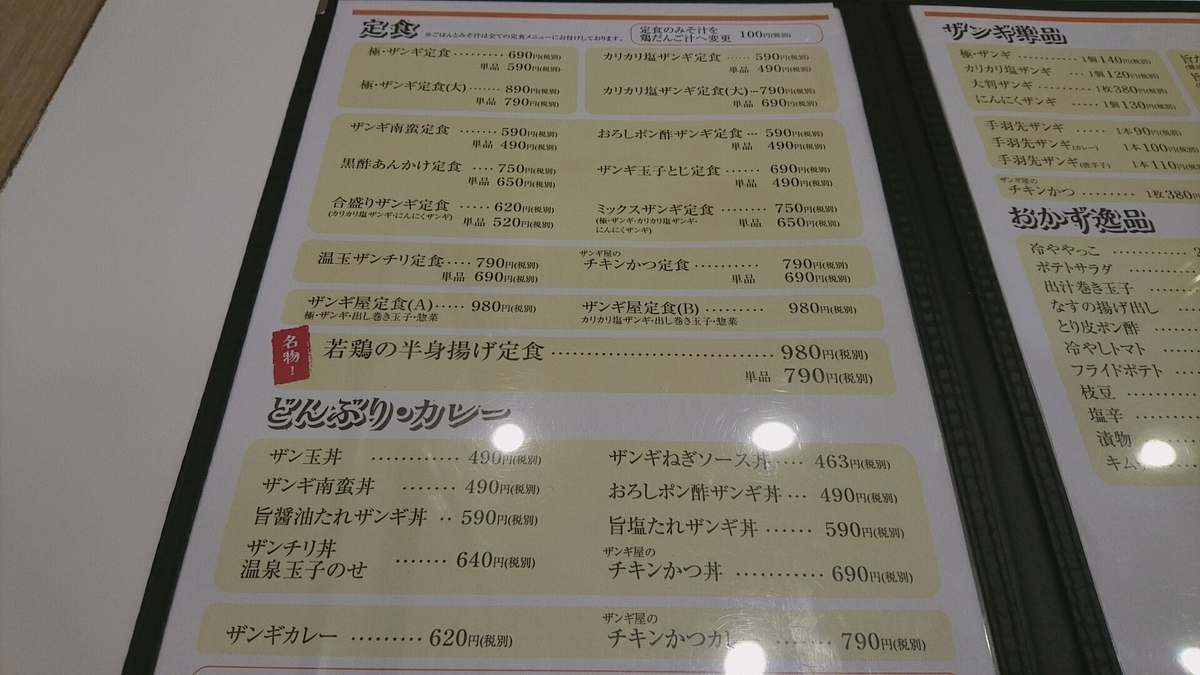 定食 ※ごはんとみそ汁は全ての定食メニューにお付けしております。
定食のみそ汁を
鶏だんご汁へ変更 100円(税別)
極・ザンギ定食 ········· 690円(税別)
単品 590円(税別)
極・ザンギ定食(大) ······ 890円(税別)
単品 790円(税別)
カリカリ塩ザンギ定食 ····· 590円(税別)
単品 490円(税別)
カリカリ塩ザンギ定食(大)···790円(税別)
単品 690円(税別)
ザンギ南蛮定食 ······· 590円(税別)
単品 490円(税別)
黒酢あんかけ定食 ···· 750円(税別)
単品 650円(税別)
合盛りザンギ定食 ····· 620円(税別)
(カリカリ塩ザンギ・にんにくザンギ) 単品 520円(税別)
おろしポン酢ザンギ定食 ··· 590円(税別)
単品 490円(税別)
ザンギ玉子とじ定食 ······ 690円(税別)
単品 490円(税別)
ミックスザンギ定食 ······ 750円(税別)
(極・ザンギ・カリカリ塩ザンギ・ 単品 650円(税別)
にんにくザンギ)
温玉ザンチリ定食 ···· 790円(税別)
単品 690円(税別)
ザンギ屋の
チキンかつ定食 ·········· 790円(税別)
単品 690円(税別)
ザンギ屋定食(A)····· 980円(税別)
極・ザンギ・出し巻き玉子・惣菜
ザンギ屋定食(B) ········· 980円(税別)
カリカリ塩ザンギ・出し巻き玉子・惣菜
名物!
若鶏の半身揚げ定食 ······························ 980円(税別)
単品 790円(税別)
どんぶり・カレー
ザン玉丼 ············ 490円(税別)
ザンギ南蛮丼 ······· 490円(税別)
旨醤油たれザンギ丼 ·· 590円(税別)
ザンチリ丼
温泉玉子のせ ········ 640円(税別)
ザンギねぎソース丼 ···· 463円(税別)
おろしポン酢ザンギ丼 ··· 490円(税別)
旨塩たれザンギ丼 ······ 590円(税別)
ザンギ屋の
チキンかつ丼 ············ 690円(税別)
ザンギカレー ·········· 620円(税別)
ザンギ屋の
チキンかつカレ ········· 790円(税別)
ザンギ単品
極・ザンギ ·········· 1個140円(税別)
カリカリ塩ザンギ ···· 1個120円(税別)
大判ザンギ ········ 1枚380円(税別)
にんにくザンギ ····· 1個130円(税別)
手羽先ザンギ ····· 1本90円(税別)
手羽先ザンギ(カレー) 1本100円(税別)
手羽先ザンギ(唐辛子) 1本110円(税別)
ザンギ屋の
チキンかつ ········ 1枚380円
おかず逸品
冷ややっこ
ポテトサラダ
出汁巻き玉子
なすの揚げ出し
とり皮ポン酢
冷やしトマト
フライドポテト
枝豆
塩辛
漬物
キムチ